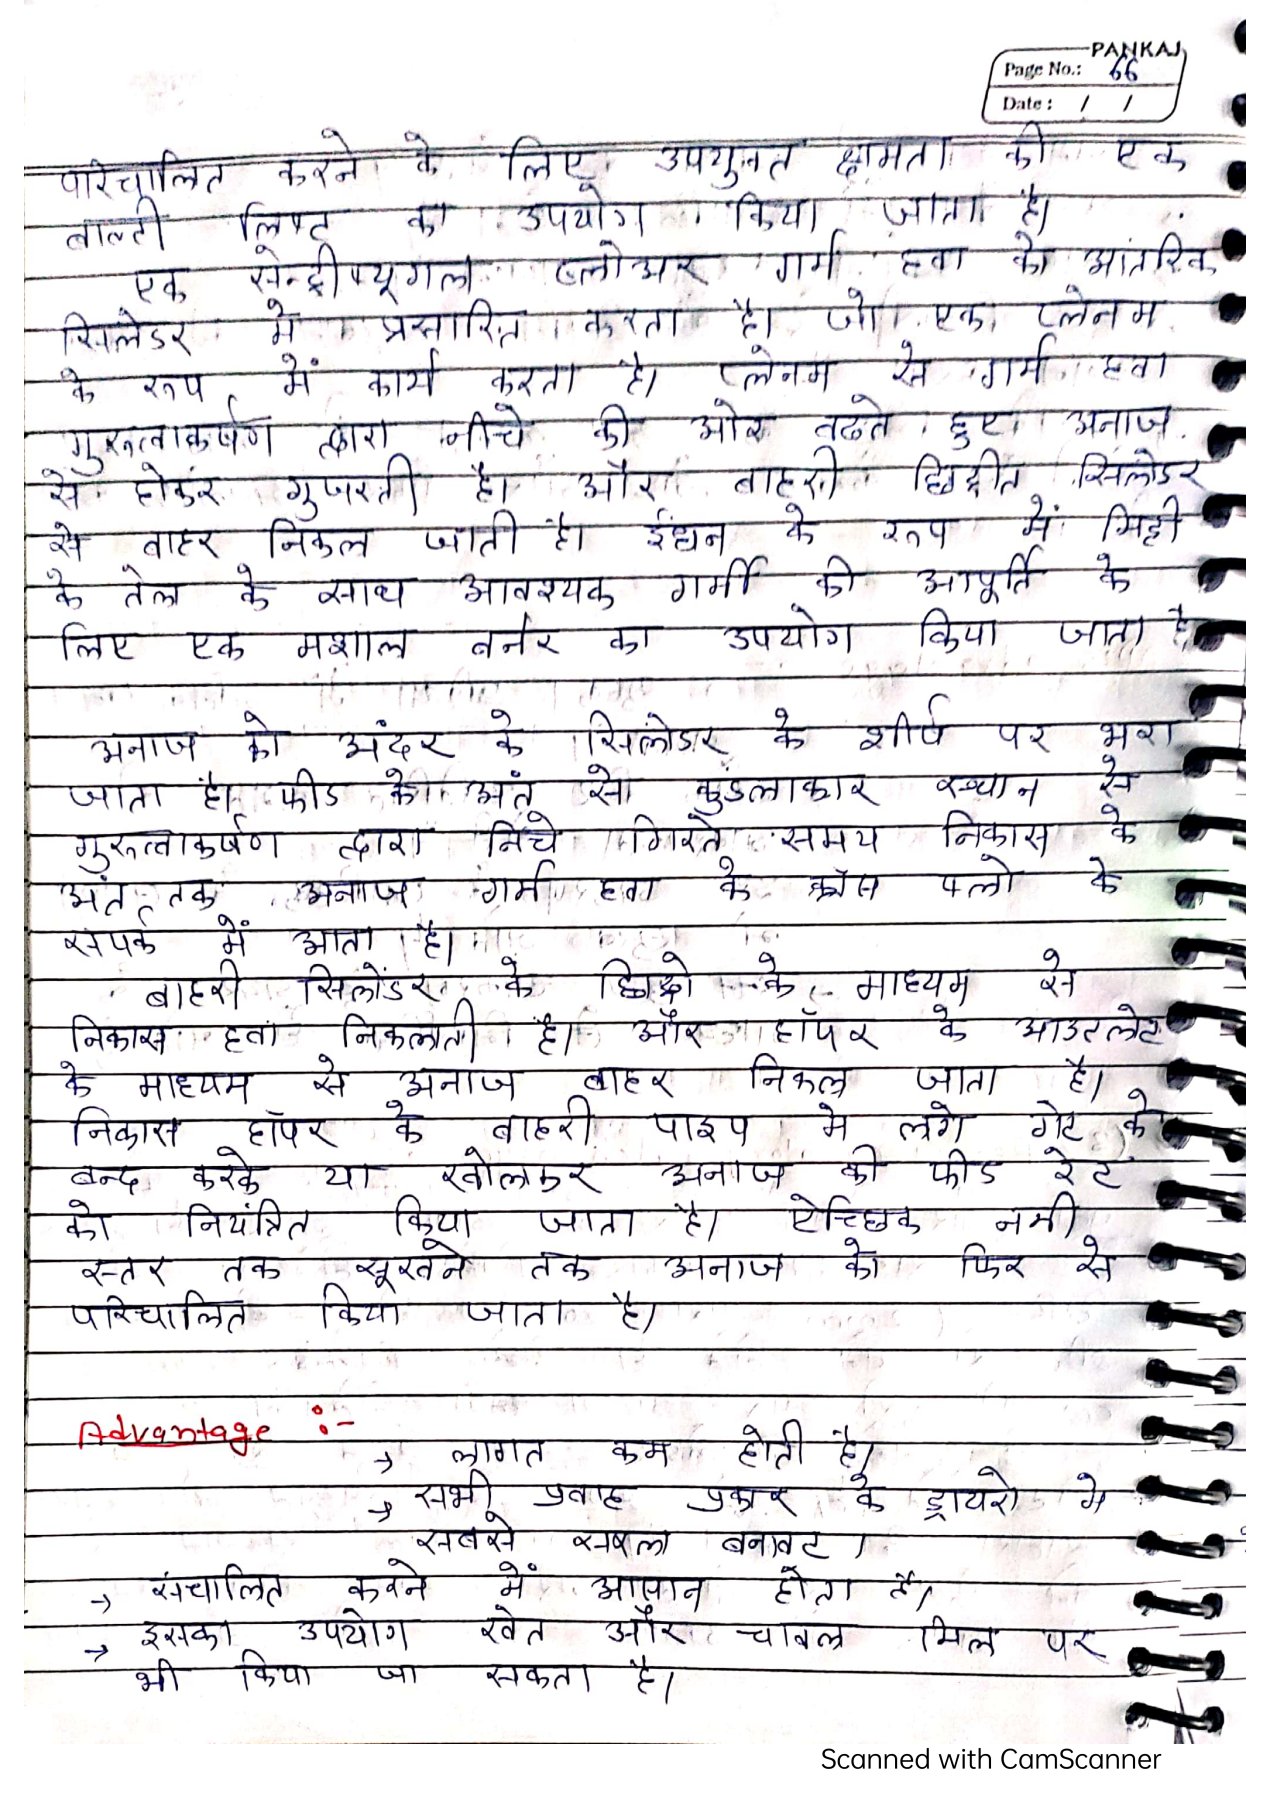 PANKAJ
Page No.: 66
Date : / /
परिचालित करने के लिए उपयुक्त क्षमता की एक
बाल्टी लिफ्ट का उपयोग किया जाता है।
एक सेन्ट्रीफ्यूगल ब्लोअर गर्म हवा को आंतरिक
सिलेंडर में प्रसारित करता है। जो एक प्लेनम
के रूप में कार्य करता है। प्लेनम से गर्म हवा
गुरुत्वाकर्षण द्वारा नीचे की ओर बढते हुए अनाज
से होकर गुजरती है। और बाहरी छिद्रीत सिलेंडर
से बाहर निकल जाती है। ईंधन के रूप में मिट्टी
के तेल के साथ आवश्यक गर्मी की आपूर्ति के
लिए एक मशाल बर्नर का उपयोग किया जाता है
अनाज को अंदर के सिलेंडर के शीर्ष पर भरा
जाता है। फीड के अंत से कुंडलाकार स्थान से
गुरुत्वाकर्षण द्वारा निचे गिरते समय निकास के
अंत तक अनाज गर्म हवा के क्रॉस फ्लो के
संपर्क में आता है।
बाहरी सिलेंडर के छिद्रो के माध्यम से
निकास हवा निकलती है। और हॉपर के आउटलेट
के माध्यम से अनाज बाहर निकल जाता है।
निकास हॉपर के बाहरी पाइप मे लगे गेट को
बन्द करके या खोलकर अनाज की फीड रेट
को नियंत्रित किया जाता है। ऐच्छिक नमी
स्तर तक सूखने तक अनाज को फिर से
परिचालित किया जाता है।
Advantage :-
→ लागत कम होती है।
→ सभी प्रवाह प्रकार के ड्रायरो मे
सबसे सरल बनावट ।
→ संचालित करने में आसान होता है।
→ इसका उपयोग खेत और चावल मिल पर
भी किया जा सकता है।
Scanned with CamScanner